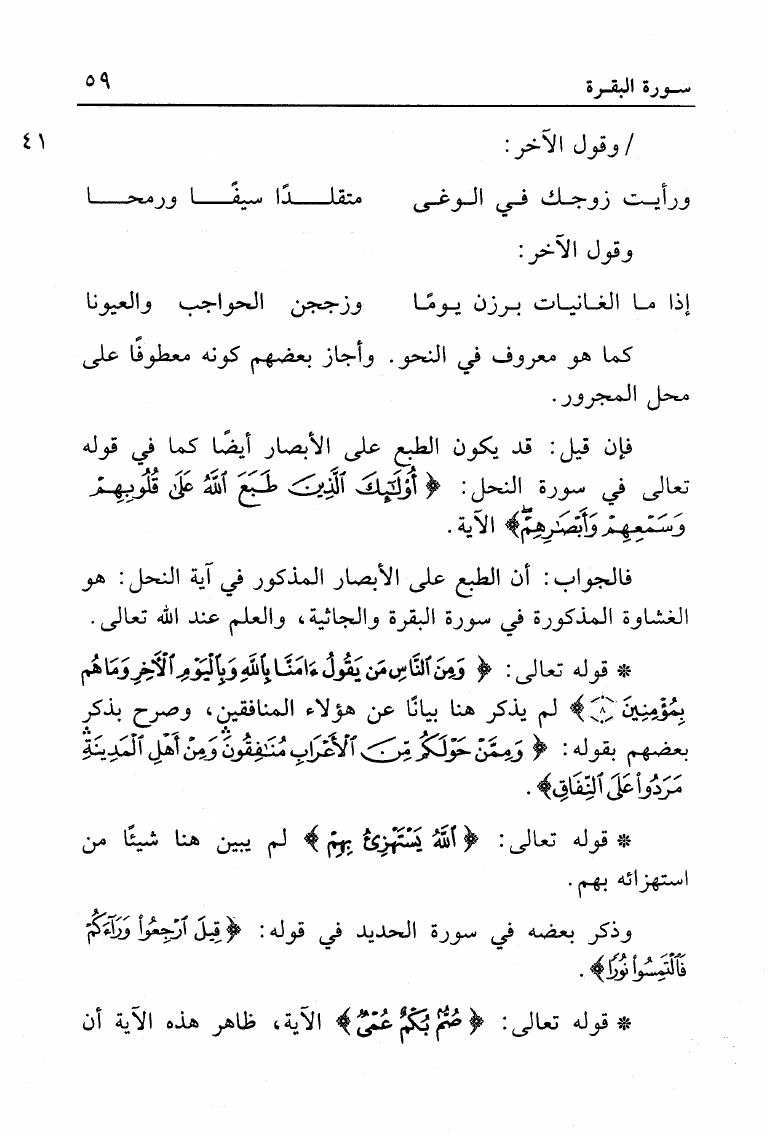 سورة البقرة ٥٩
/ وقول الآخر: ٤١
ورأيت زوجك في الوغى متقلدًا سيفًا ورمحا
وقول الآخر:
إذا ما الغانيات برزن يومًا وزججن الحواجب والعيونا
كما هو معروف في النحو. وأجاز بعضهم كونه معطوفًا على
محل المجرور.
فإن قيل: قد يكون الطبع على الأبصار أيضًا كما في قوله
تعالى في سورة النحل: ﴿أُوْلَٰٓئِكَ ٱلَّذِينَ طَبَعَ ٱللَّهُ عَلَىٰ قُلُوبِهِمۡ
وَسَمۡعِهِمۡ وَأَبۡصَٰرِهِمۡۖ﴾ الآية.
فالجواب: أن الطبع على الأبصار المذكور في آية النحل: هو
الغشاوة المذكورة في سورة البقرة والجاثية، والعلم عند الله تعالى.
* قوله تعالى: ﴿وَمِنَ ٱلنَّاسِ مَن يَقُولُ ءَامَنَّا بِٱللَّهِ وَبِٱلۡيَوۡمِ ٱلۡأٓخِرِ وَمَا هُم
بِمُؤۡمِنِينَ ٨﴾ لم يذكر هنا بيانًا عن هؤلاء المنافقين، وصرح بذكر
بعضهم بقوله: ﴿وَمِمَّنۡ حَوۡلَكُم مِّنَ ٱلۡأَعۡرَابِ مُنَٰفِقُونَۖ وَمِنۡ أَهۡلِ ٱلۡمَدِينَةِۖ
مَرَدُواْ عَلَى ٱلنِّفَاقِ﴾.
* قوله تعالى: ﴿ٱللَّهُ يَسۡتَهۡزِئُ بِهِمۡ﴾ لم يبين هنا شيئًا من
استهزائه بهم.
وذكر بعضه في سورة الحديد في قوله: ﴿قِيلَ ٱرۡجِعُواْ وَرَآءَكُمۡ
فَٱلۡتَمِسُواْ نُورٗا﴾.
* قوله تعالى: ﴿صُمُّۢ بُكۡمٌ عُمۡيٞ﴾ الآية، ظاهر هذه الآية أن